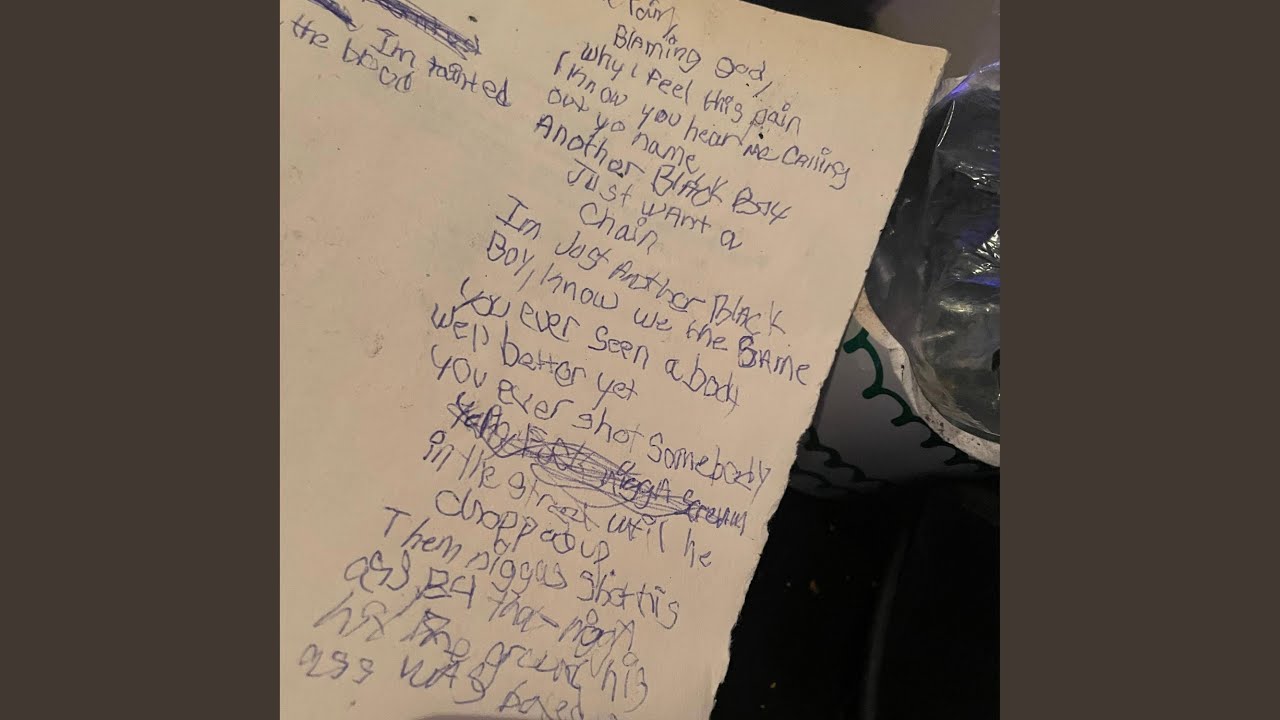 Im tainted
the blood
Pain,
Blaming god,
why i feel this pain
I know you hear me calling
out yo name
Another Black Boy
Just want a
chain
Im Just Another Black
Boy, know we the Blame
you ever seen a body
wep better yet
you ever shot somebody
in the street until he
chopped up
Them niggas shot his
ass By tha nigga
hit the ground his
ass was